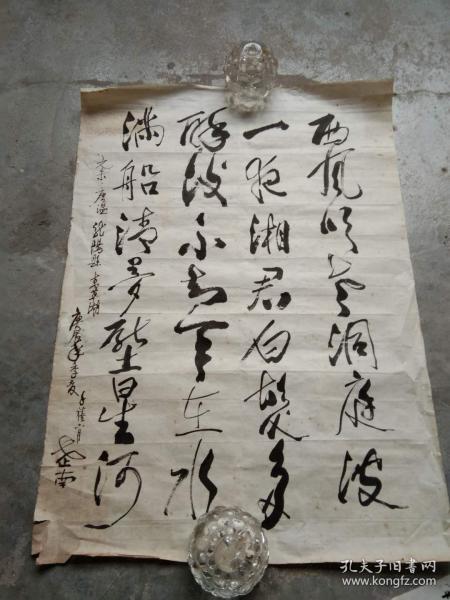 西風吹老洞庭波
一夜湘君白髮多
醉後不知天在水
滿船清夢壓星河
唐温 龍陽縣青草湖
庚辰年季夏
孔夫子旧书网
www.kongfz.com